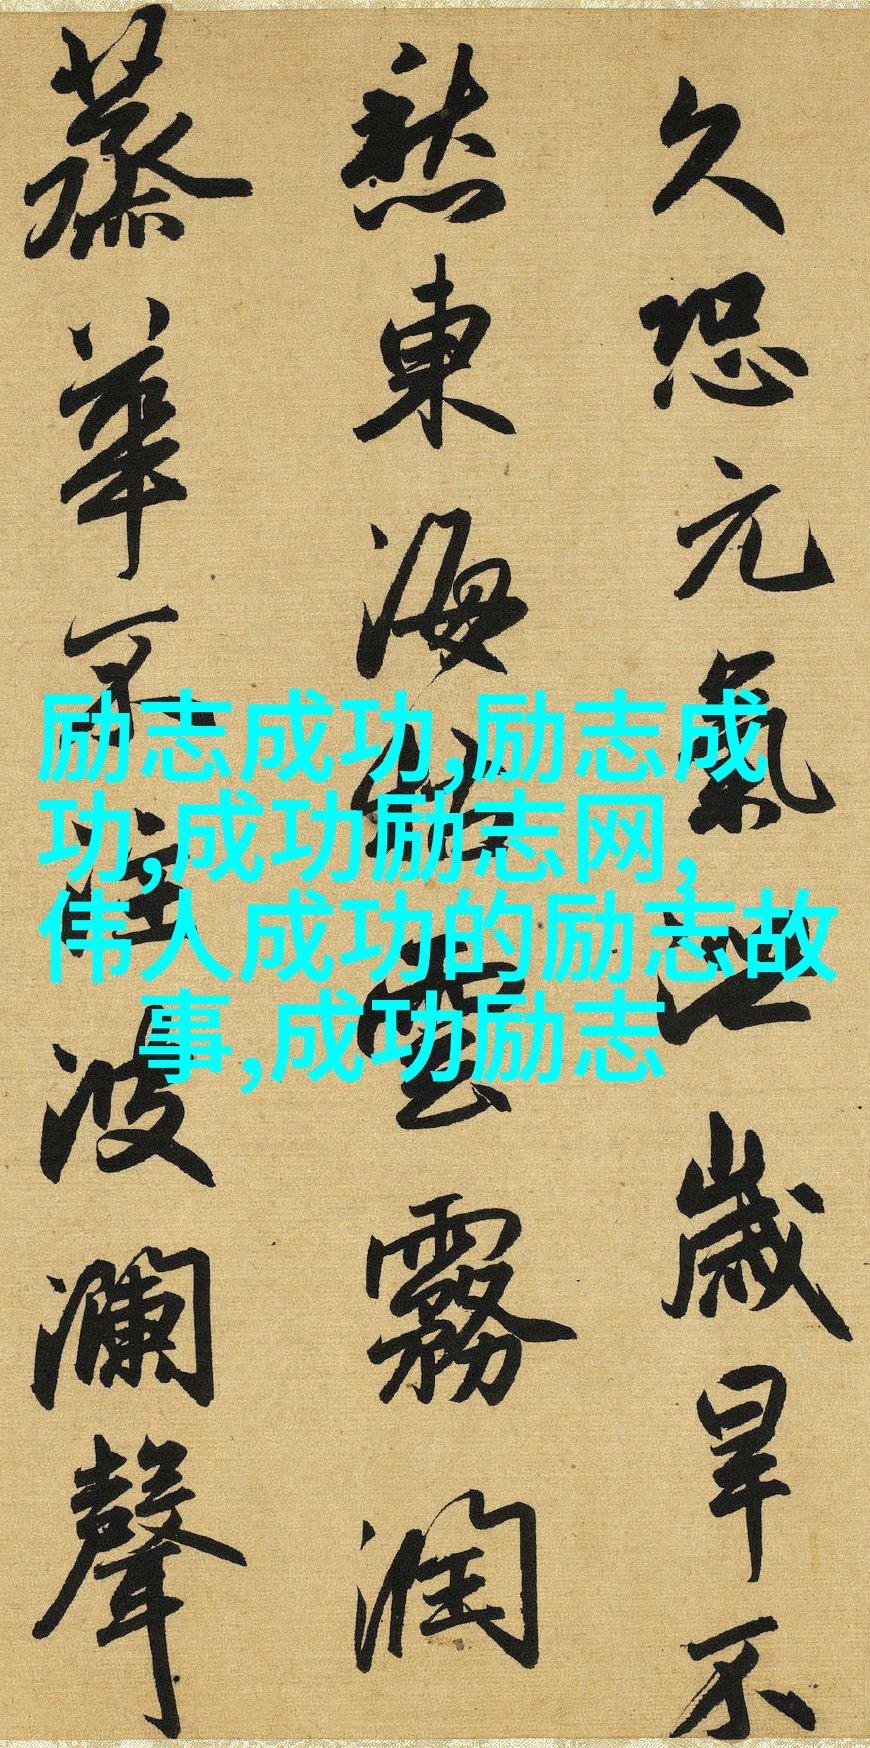 久恐元氣泄歲旱不
愁東海枯雲霧潤
蒸華不注波瀾聲
励志成功,励志成
功,成功励志网,
伟人成功的励志故
事,成功励志